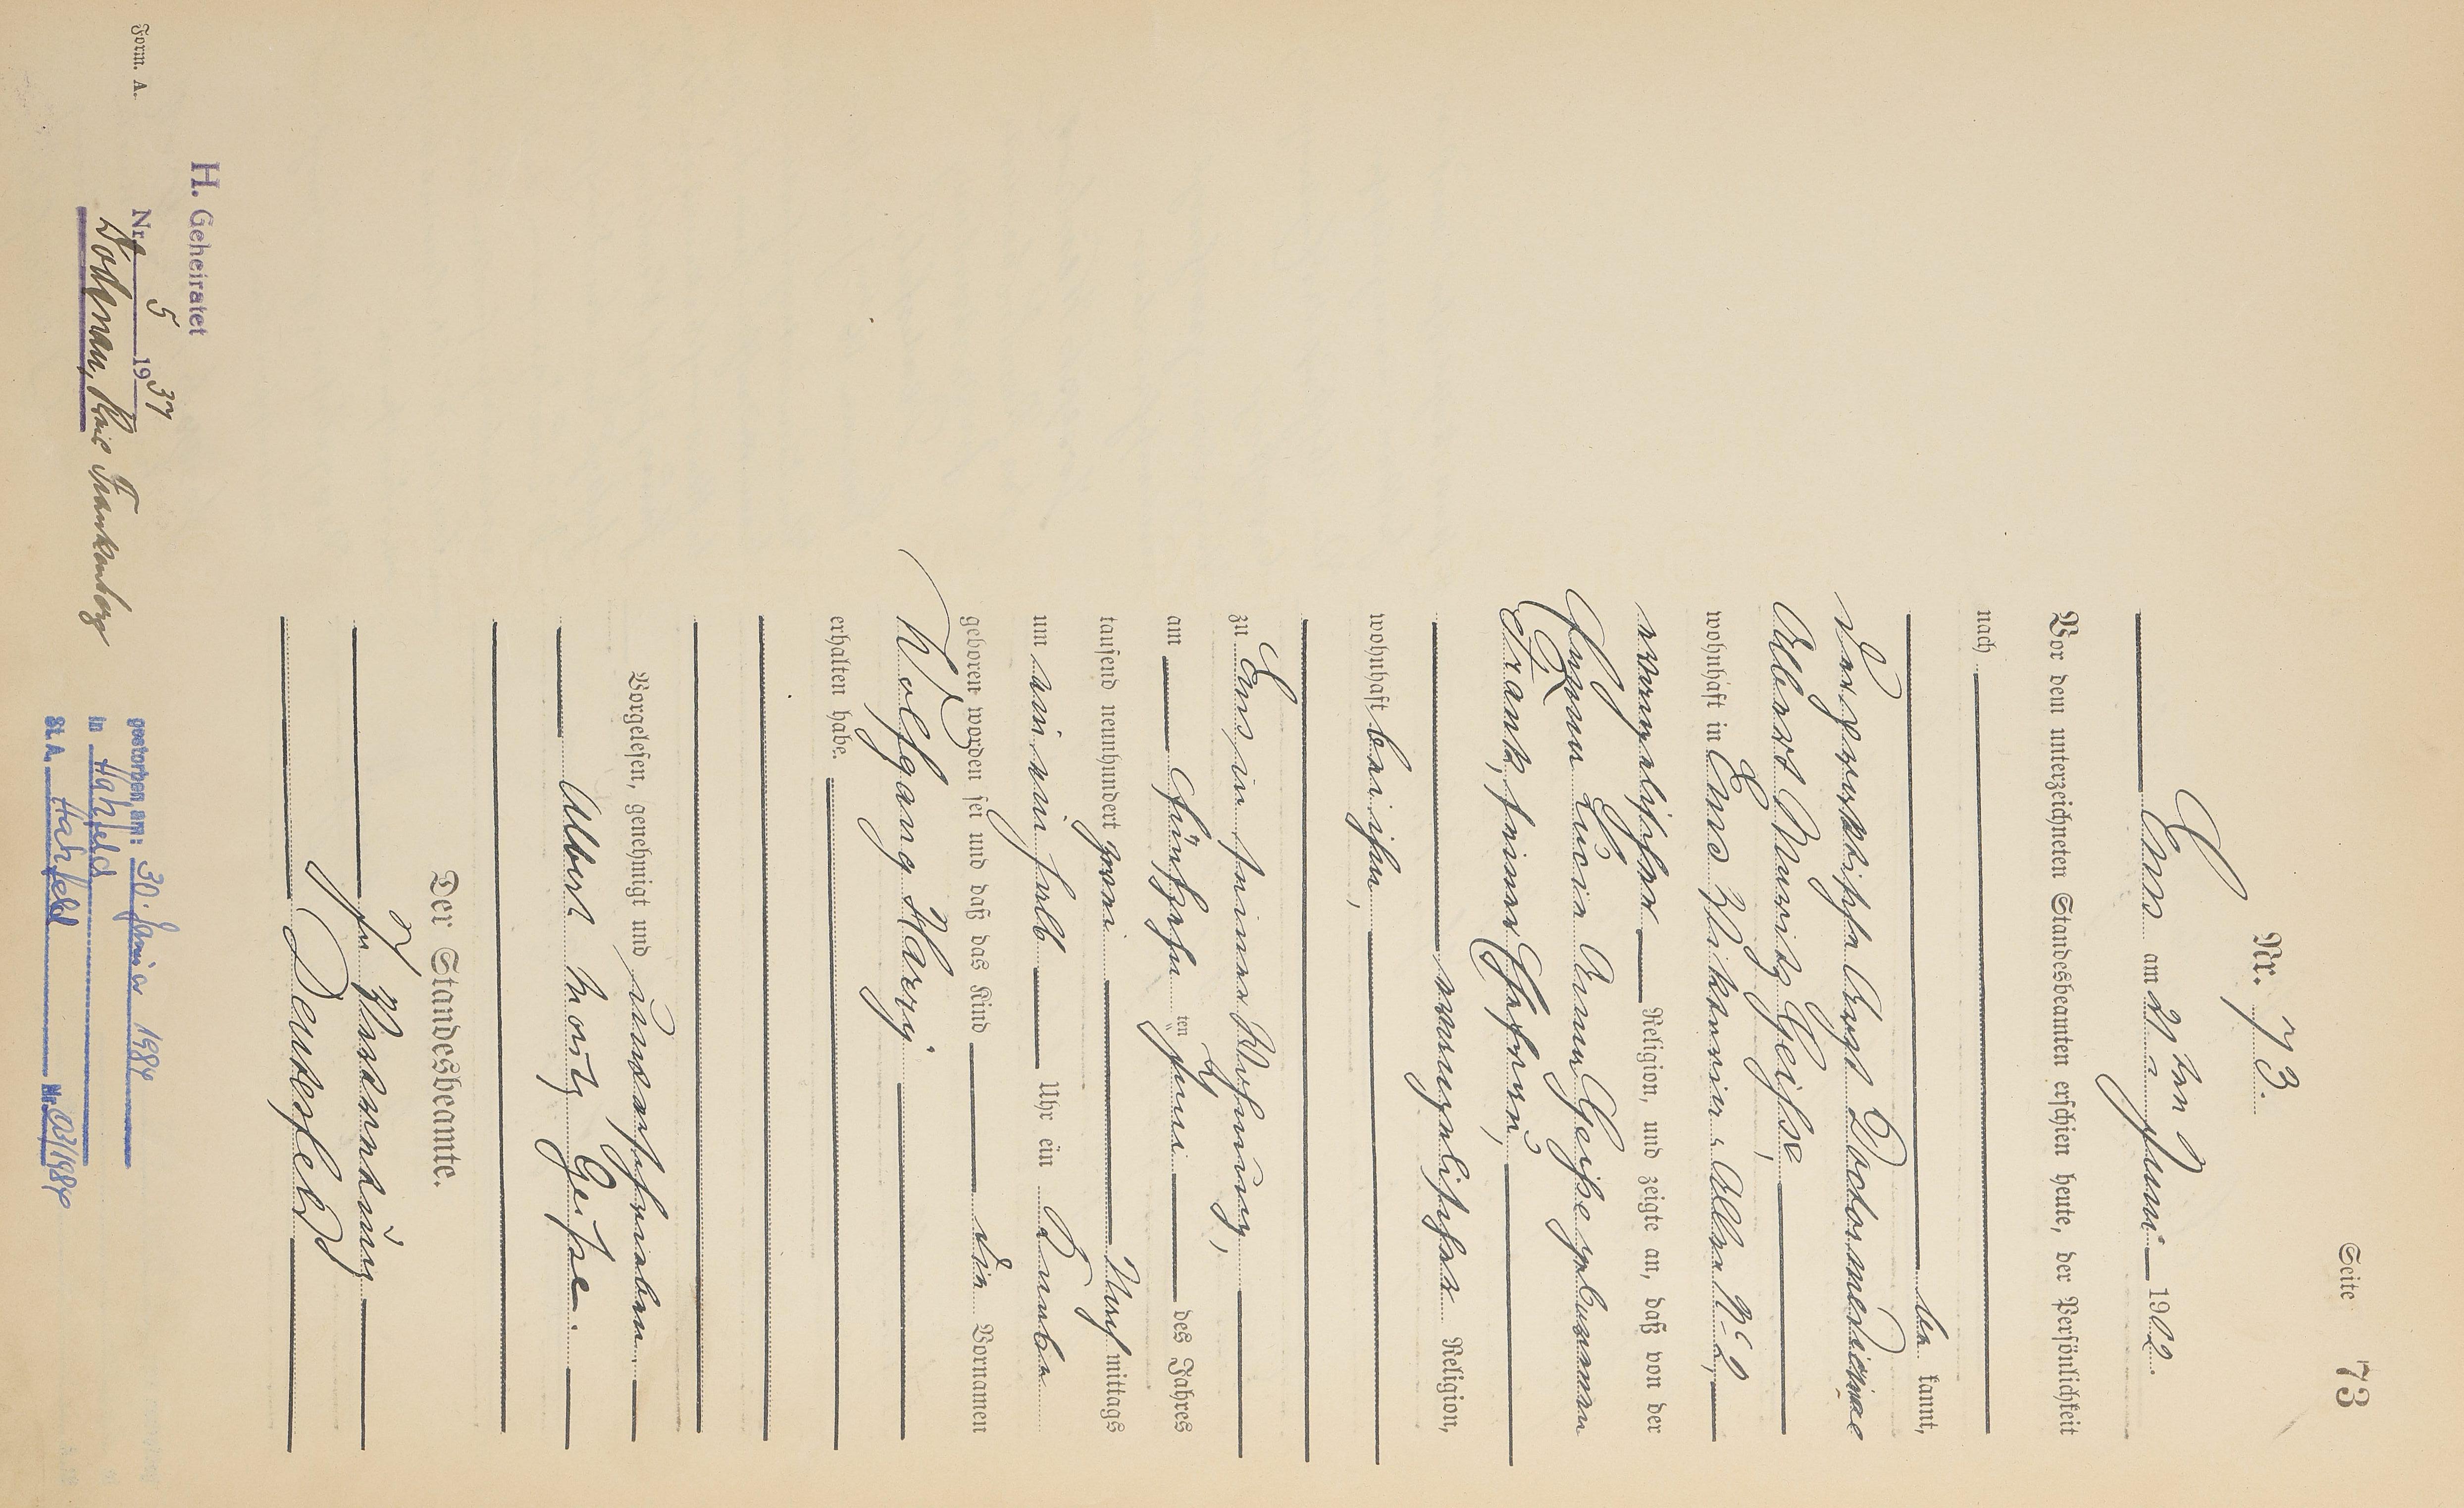 Seite 73
Nr. 73.
Ems am 21ten Juni 1902.
Vor dem unterzeichneten Standesbeamten erschien heute, der Persönlichkeit
nach
be kannt,
der praktische Arzt Doctor medicinae
Albert Moritz Geisse,
wohnhaft in Ems,
evangelischer Religion, und zeigte an, daß von der
Lucia Anna Geisse geborenen
Frank, seiner Ehefrau,
evangelischer Religion,
wohnhaft bei ihm,
zu Ems in seiner Wohnung,
am fünfzehnten Juni des Jahres
tausend neunhundert zwei Nachmittags
um ein ein halb Uhr ein Knabe
geboren worden sei und daß das Kind die Vornamen
Wolfgang Harry
erhalten habe.
Vorgelesen, genehmigt und unterschrieben
Albert Moritz Geisse.
Der Standesbeamte.
In Vertretung
Deusesfeld
Form. A.
H. Geheiratet
Nr. 5 1937
Frankenberg
gestorben am: 30. Januar 1984
in Hatzfeld
St.A. Hatzfeld Nr. 03/1984